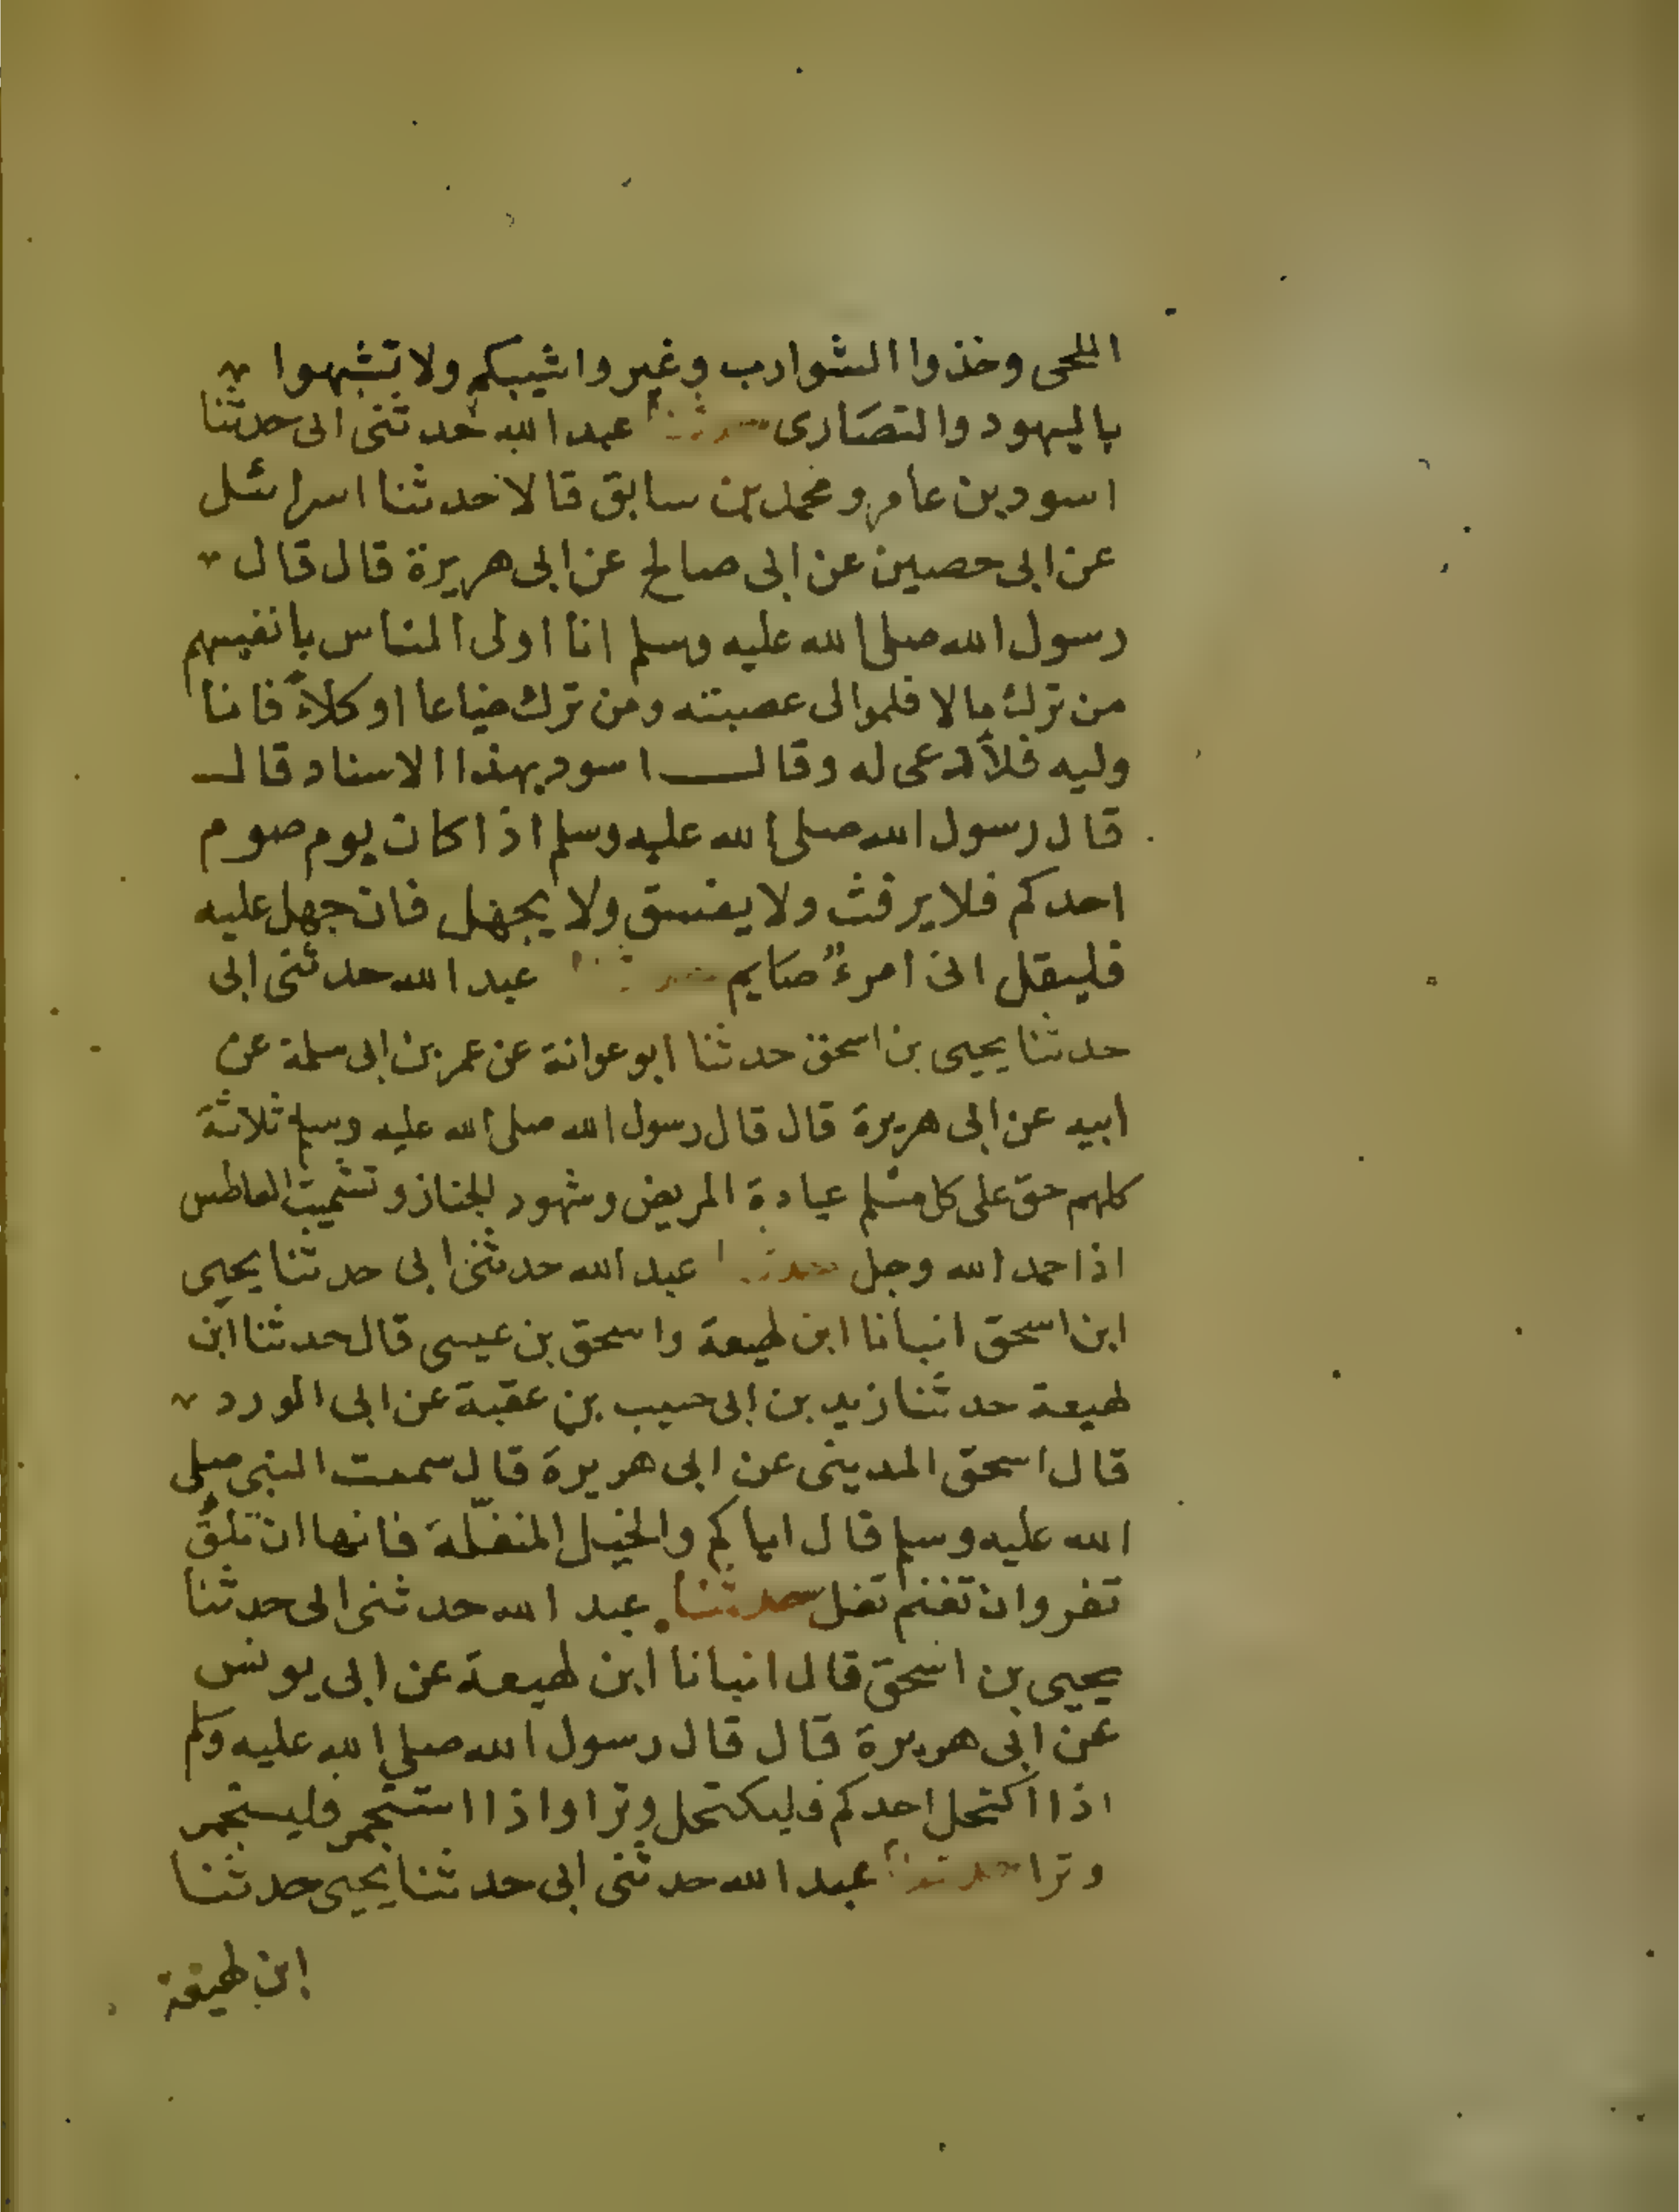 اللحى وخذوا الشوارب وغيروا شيبكم ولا تشبهوا
باليهود والنصَارى حدثنا عبد الله حدثنى ابى حدثنا
اسود بن عامر ومحمد بن سابق قالا حدثنا اسرائل
عن ابى حصين عن ابى صالح عن ابى هريرة قال قال
رسول الله صلى الله عليه وسلم انا اولى الناس بانفسهم
من ترك مالا فلموالى عصبته ومن ترك ضياعا او كلاً فانا
وليه فلأدعى له وقال اسود بهذا الاسناد قال
قال رسول الله صلى الله عليه وسلم اذا كان يوم صوم
احدكم فلا يرفث ولا يفسق ولا يجهل فان جهل عليه
فليقل انى امرءٌ صَايم حدثنا عبد الله حدثنى ابى
حدثنا يحيى بن اسحق حدثنا ابو عوانة عن عمر بن ابى سلمة عن
ابيه عن ابى هريرة قال قال رسول الله صلى الله عليه وسلم ثلاثة
كلهم حق على كل مسلم عيادة المريض وشهود الجناز وتشميت العاطس
اذا حمد الله وجل حدثنا عبد الله حدثنى ابى حدثنا يحيى
ابن اسحق انبانا ابن لهيعة واسحق بن عيسى قال حدثنا ابن
لهيعة حدثنا زيد بن ابى حبيب بن عقبة عن ابى الورد
قال اسحق المدينى عن ابى هريرة قال سمعت النبى صلى
الله عليه وسلم قال اياكم والخيل المنفّلة فانها ان تلقَ
تفر وان تغنم تغل حدثنا عبد الله حدثنى ابى حدثنا
يحيى بن اسحق قال انبانا ابن لهيعة عن ابى يونس
عن ابى هريرة قال قال رسول الله صلى الله عليه وسلم
اذا اكتحل احدكم فليكتحل وترا واذا استجمر فليستجمر
وترا حدثنا عبد الله حدثنى ابى حدثنا يحيى حدثنا
ابن لهيعة